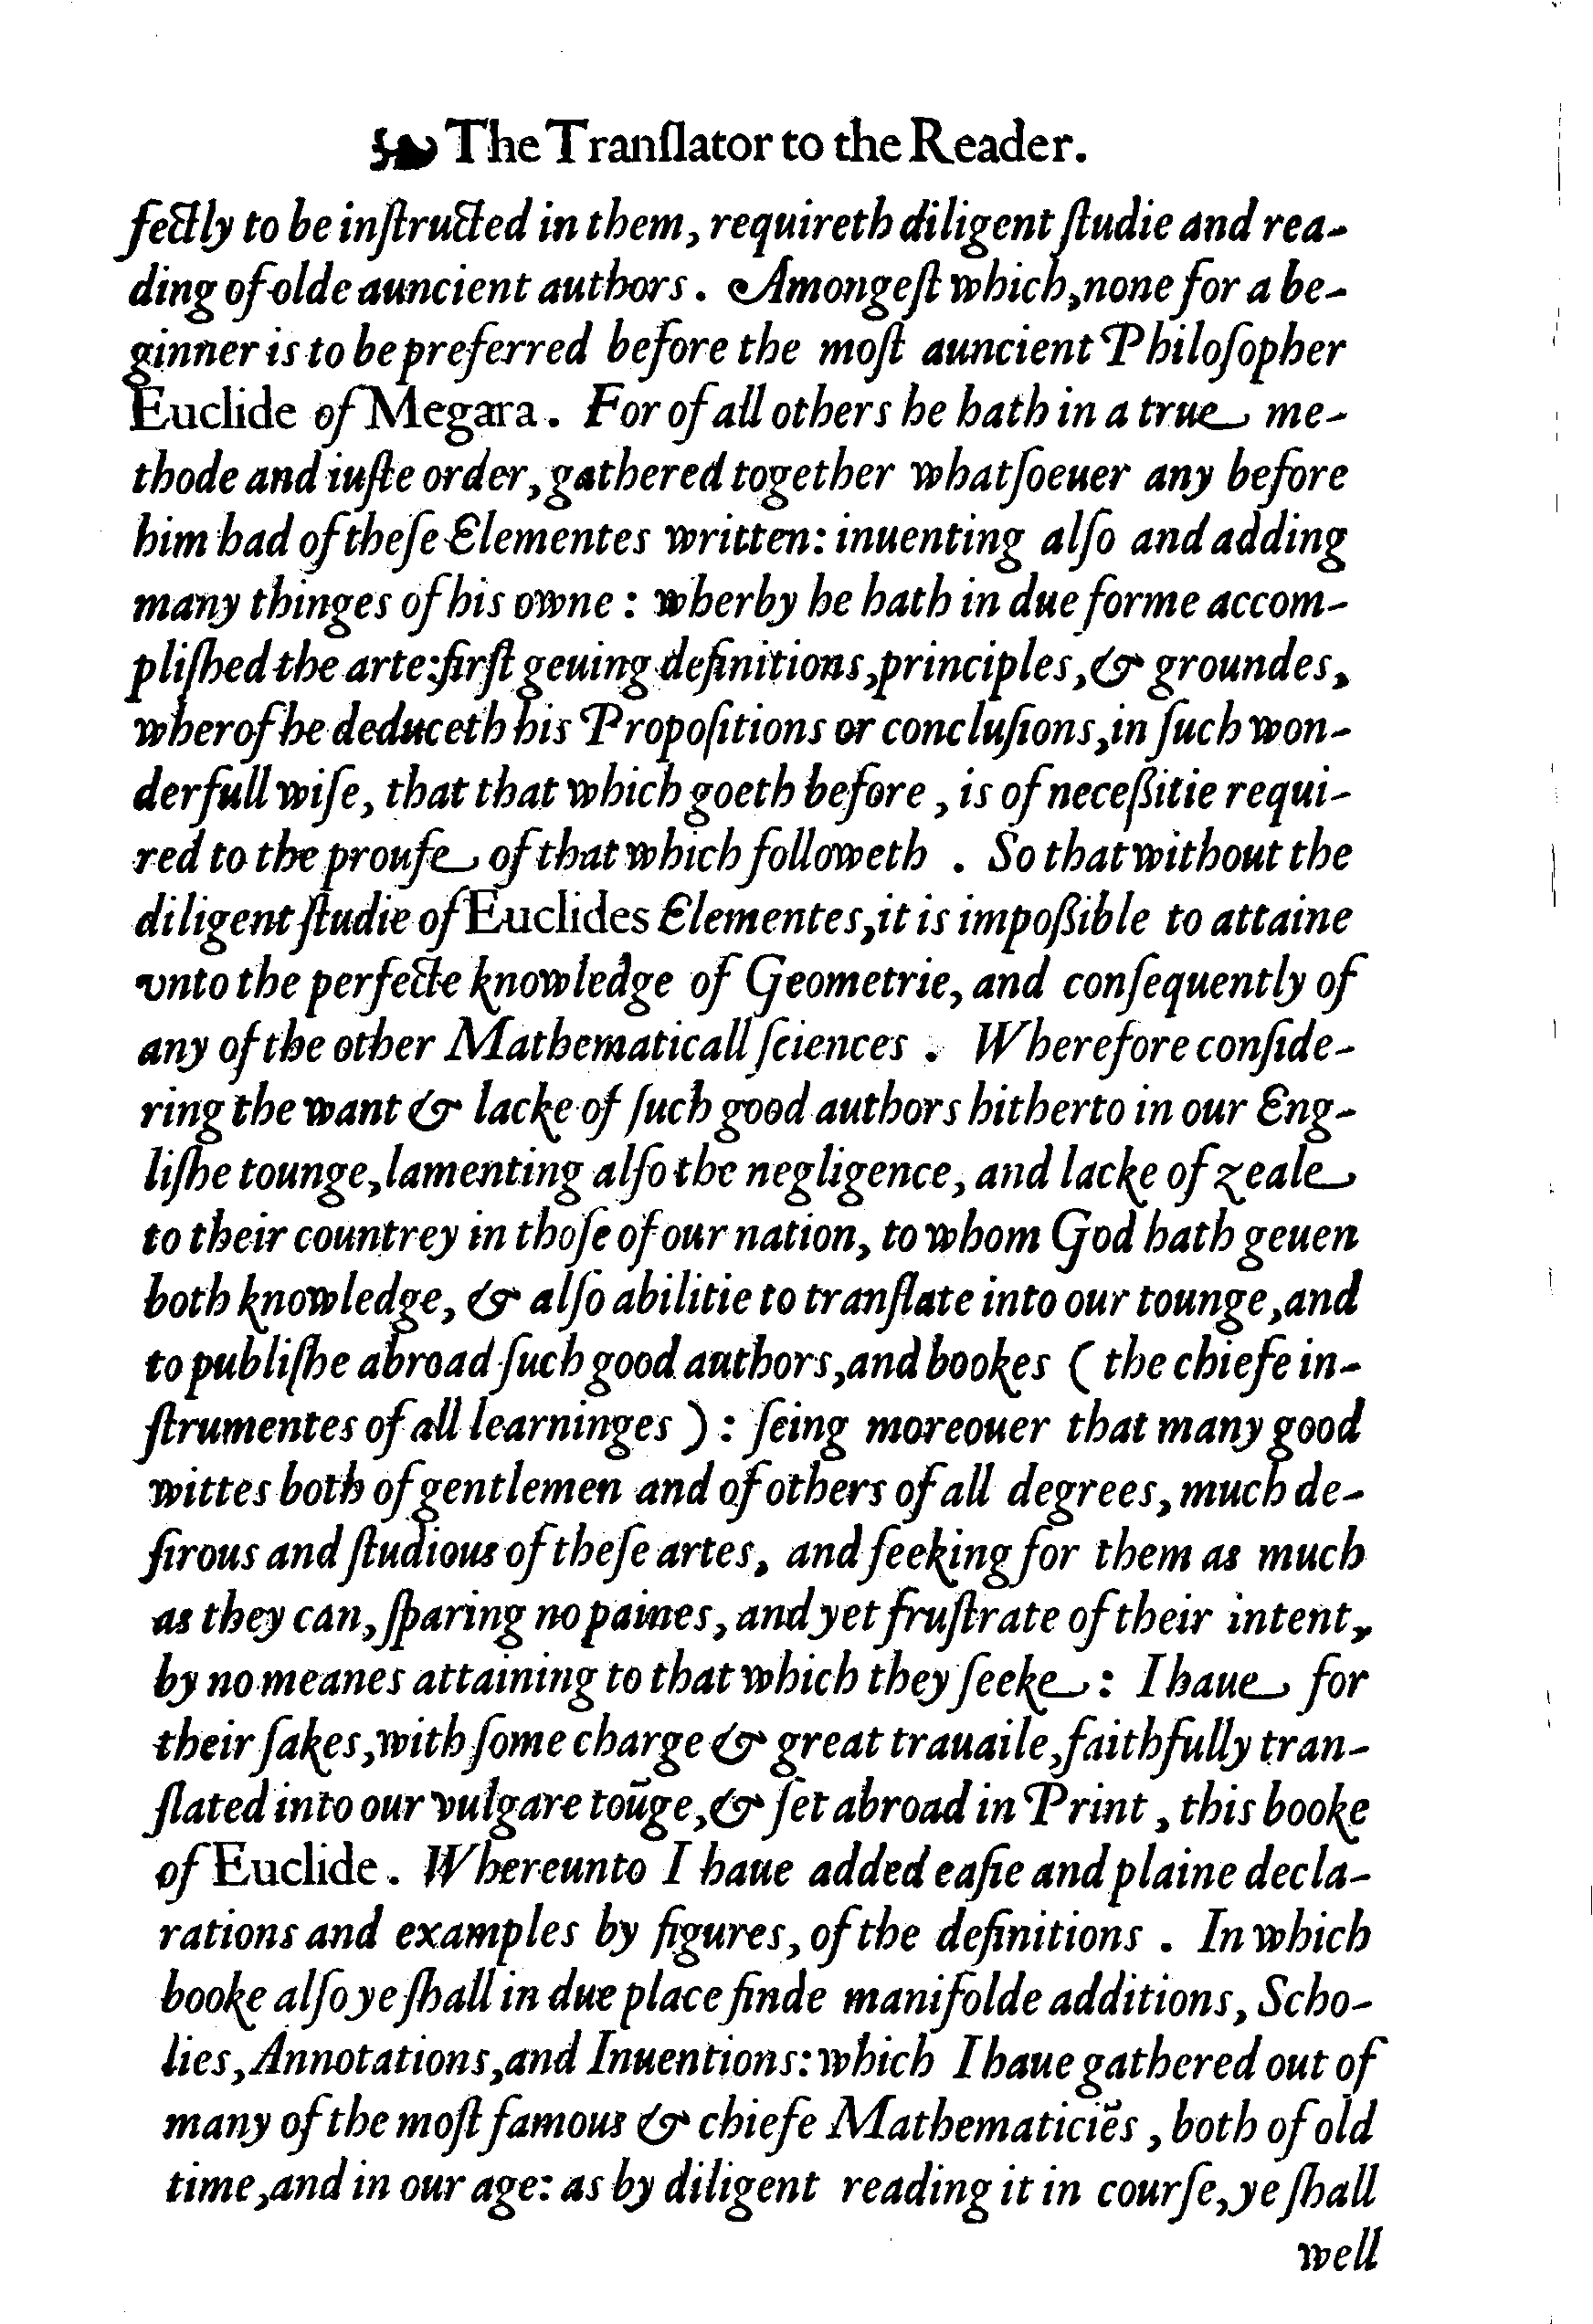 ❧ The Tranſlator to the Reader.
fectly to be inſtructed in them, requireth diligent ſtudie and rea-
ding of olde auncient authors. Amongeſt which, none for a be-
ginner is to be preferred before the moſt auncient Philoſopher
Euclide of Megara. For of all others he hath in a true me-
thode and iuſte order, gathered together whatſoeuer any before
him had of theſe Elementes written: inuenting alſo and adding
many thinges of his owne: wherby he hath in due forme accom-
pliſhed the arte: firſt geuing definitions, principles, & groundes,
wherof he deduceth his Propoſitions or concluſions, in ſuch won-
derfull wiſe, that that which goeth before, is of neceſsitie requi-
red to the proufe of that which followeth. So that without the
diligent ſtudie of Euclides Elementes, it is impoſsible to attaine
vnto the perfecte knowledge of Geometrie, and conſequently of
any of the other Mathematicall ſciences. Wherefore conſide-
ring the want & lacke of ſuch good authors hitherto in our Eng-
liſhe tounge, lamenting alſo the negligence, and lacke of zeale
to their countrey in thoſe of our nation, to whom God hath geuen
both knowledge, & alſo abilitie to tranſlate into our tounge, and
to publiſhe abroad ſuch good authors, and bookes (the chiefe in-
ſtrumentes of all learninges): ſeing moreouer that many good
wittes both of gentlemen and of others of all degrees, much de-
ſirous and ſtudious of theſe artes, and ſeeking for them as much
as they can, ſparing no paines, and yet fruſtrate of their intent,
by no meanes attaining to that which they ſeeke: I haue for
their ſakes, with ſome charge & great trauaile, faithfully tran-
ſlated into our vulgare toũge, & ſet abroad in Print, this booke
of Euclide. Whereunto I haue added eaſie and plaine decla-
rations and examples by figures, of the definitions. In which
booke alſo ye ſhall in due place finde manifolde additions, Scho-
lies, Annotations, and Inuentions: which I haue gathered out of
many of the moſt famous & chiefe Mathematiciẽs, both of old
time, and in our age: as by diligent reading it in courſe, ye ſhall
well